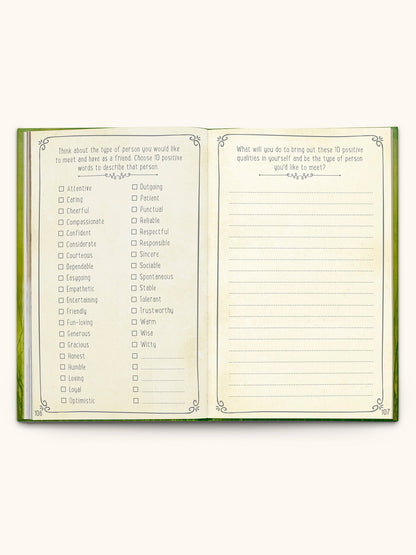 Think about the type of person you would like
to meet and have as a friend. Choose 10 positive
words to describe that person.
Attentive
Caring
Cheerful
Compassionate
Confident
Considerate
Courteous
Dependable
Easygoing
Empathetic
Entertaining
Friendly
Fun-loving
Generous
Gracious
Honest
Humble
Loving
Loyal
Optimistic
Outgoing
Patient
Punctual
Reliable
Respectful
Responsible
Sincere
Sociable
Spontaneous
Stable
Tolerant
Trustworthy
Warm
Wise
Witty
106
What will you do to bring out these 10 positive
qualities in yourself and be the type of person
you'd like to meet?
107